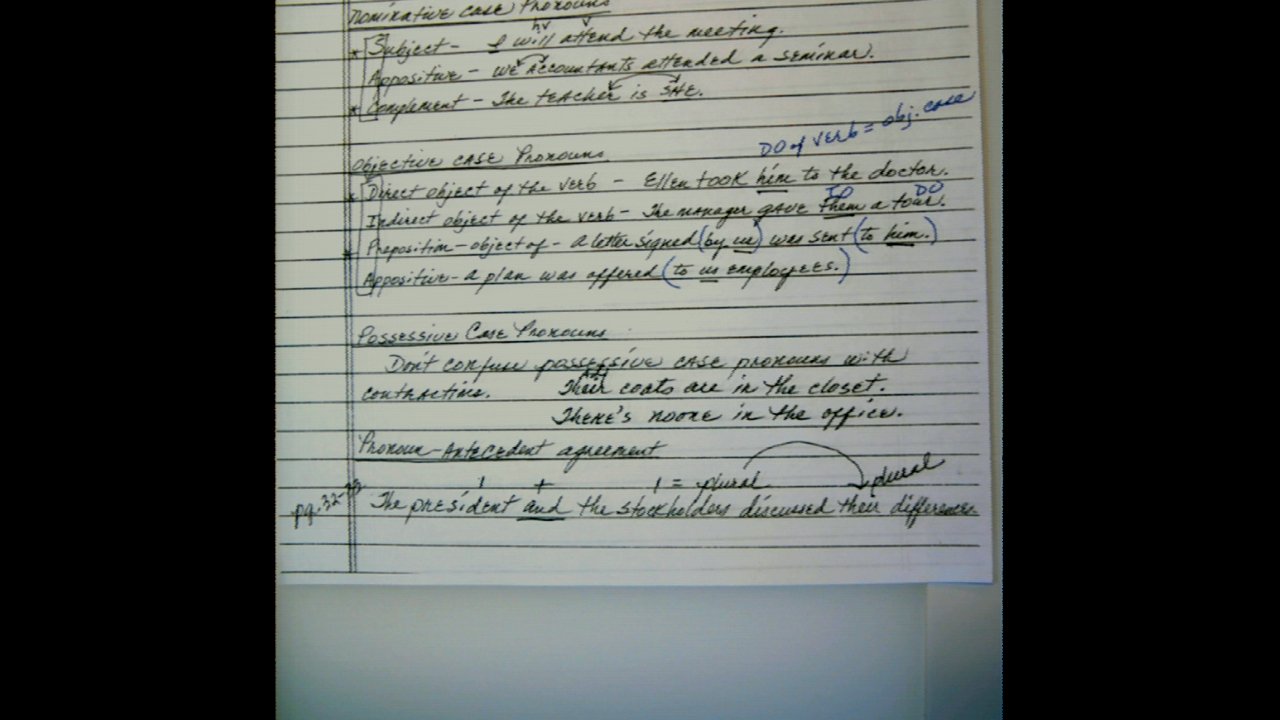 Nominative Case Pronouns
hv v
* Subject - I will attend the meeting.
Appositive - we Accountants attended a seminar.
* Complement - The teacher is SHE.
DO of verb = obj. case
Objective Case Pronouns
* Direct object of the verb - Ellen took him to the doctor.
IO DO
Indirect object of the verb - The manager gave them a tour.
* Preposition - object of - a letter signed (by us) was sent (to him.)
Appositive - a plan was offered (to us employees.)
Possessive Case Pronouns
Don't confuse possessive case pronouns with
contractions. Their coats are in the closet.
There's no one in the office.
Pronoun - Antecedent agreement
1 + 1 = plural plural
pg. 32- The president and the stockholders discussed their differences.